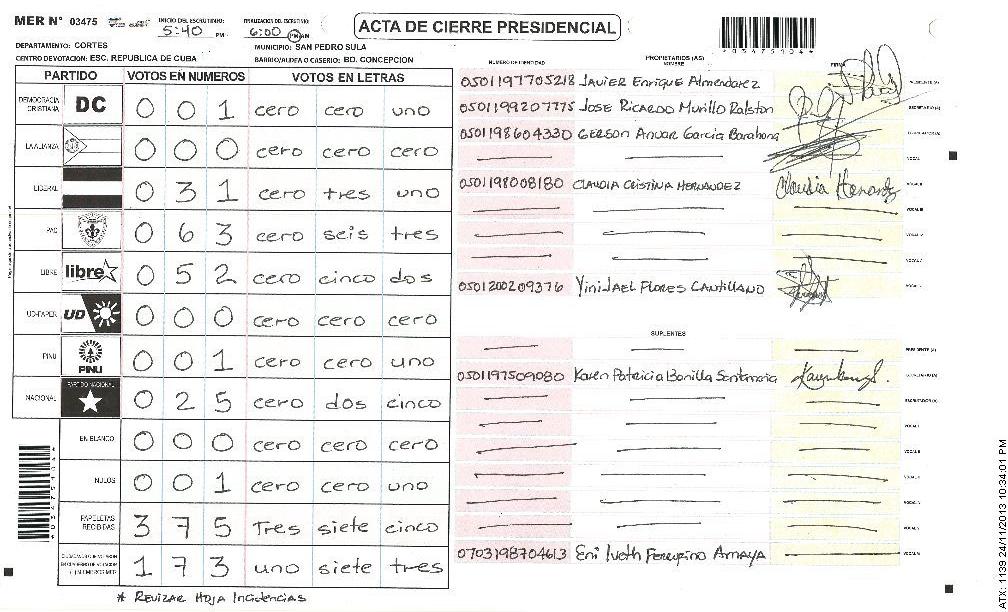 MER N° 03475 INICIO DEL ESCRUTINIO: 5:40 PM FINALIZACION DEL ESCRUTINIO: 6:00 PM
ACTA DE CIERRE PRESIDENCIAL
*03475104*
DEPARTAMENTO: CORTES MUNICIPIO: SAN PEDRO SULA
CENTRO DEVOTACION: ESC. REPUBLICA DE CUBA BARRIO/ALDEA O CASERIO: BD. CONCEPCION
PARTIDO VOTOS EN NUMEROS VOTOS EN LETRAS
DEMOCRACIA CRISTIANA DC 0 0 1 cero cero uno
LA ALIANZA 0 0 0 cero cero cero
LIBERAL 0 3 1 cero tres uno
PAC 0 6 3 cero seis tres
LIBRE libre 0 5 2 cero cinco dos
UD-FAPER UD 0 0 0 cero cero cero
PINU PINU 0 0 1 cero cero uno
NACIONAL PARTIDO NACIONAL 0 2 5 cero dos cinco
EN BLANCO 0 0 0 cero cero cero
NULOS 0 0 1 cero cero uno
PAPELETAS RECIBIDAS 3 7 5 Tres siete cinco
1 7 3 uno siete tres
* REVIZAR HOJA INCIDENCIAS
NUMERO DE IDENTIDAD PROPIETARIOS (AS) NOMBRE FIRMA
0501197705218 Javier Enrique Almendarez
0501199207775 Jose Ricardo Murillo Ralston
0501198604330 Gerson Anuar Garcia Barahona
VOCAL
0501198008180 CLAUDIA CRISTINA HERNANDEZ Claudia Hernandez
0501200209376 Yini Jael Flores Cantillano
SUPLENTES
PRESIDENTE (A)
0501197509080 Karen Patricia Bonilla Santamaria SECRETARIO (A)
ESCRUTADOR (A)
0703198704613 Eni Iveth Ferrufino Amaya
*03475104*
ATX: 1139 24/11/2013 10:34:01 PM